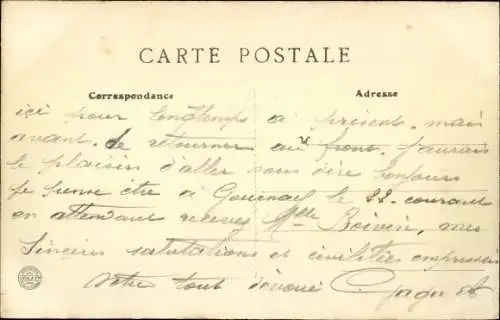 CARTE POSTALE
Correspondance Adresse
ici pour longtemps à présent. mais
avant. de retourner au front. j'aurais
le plaisir d'aller vous dire bonjour
Je pense être à le 22 courant
en attendant recevez Mlle Boivin, mes
Sincères salutations et civilités empressées
votre tout dévoué